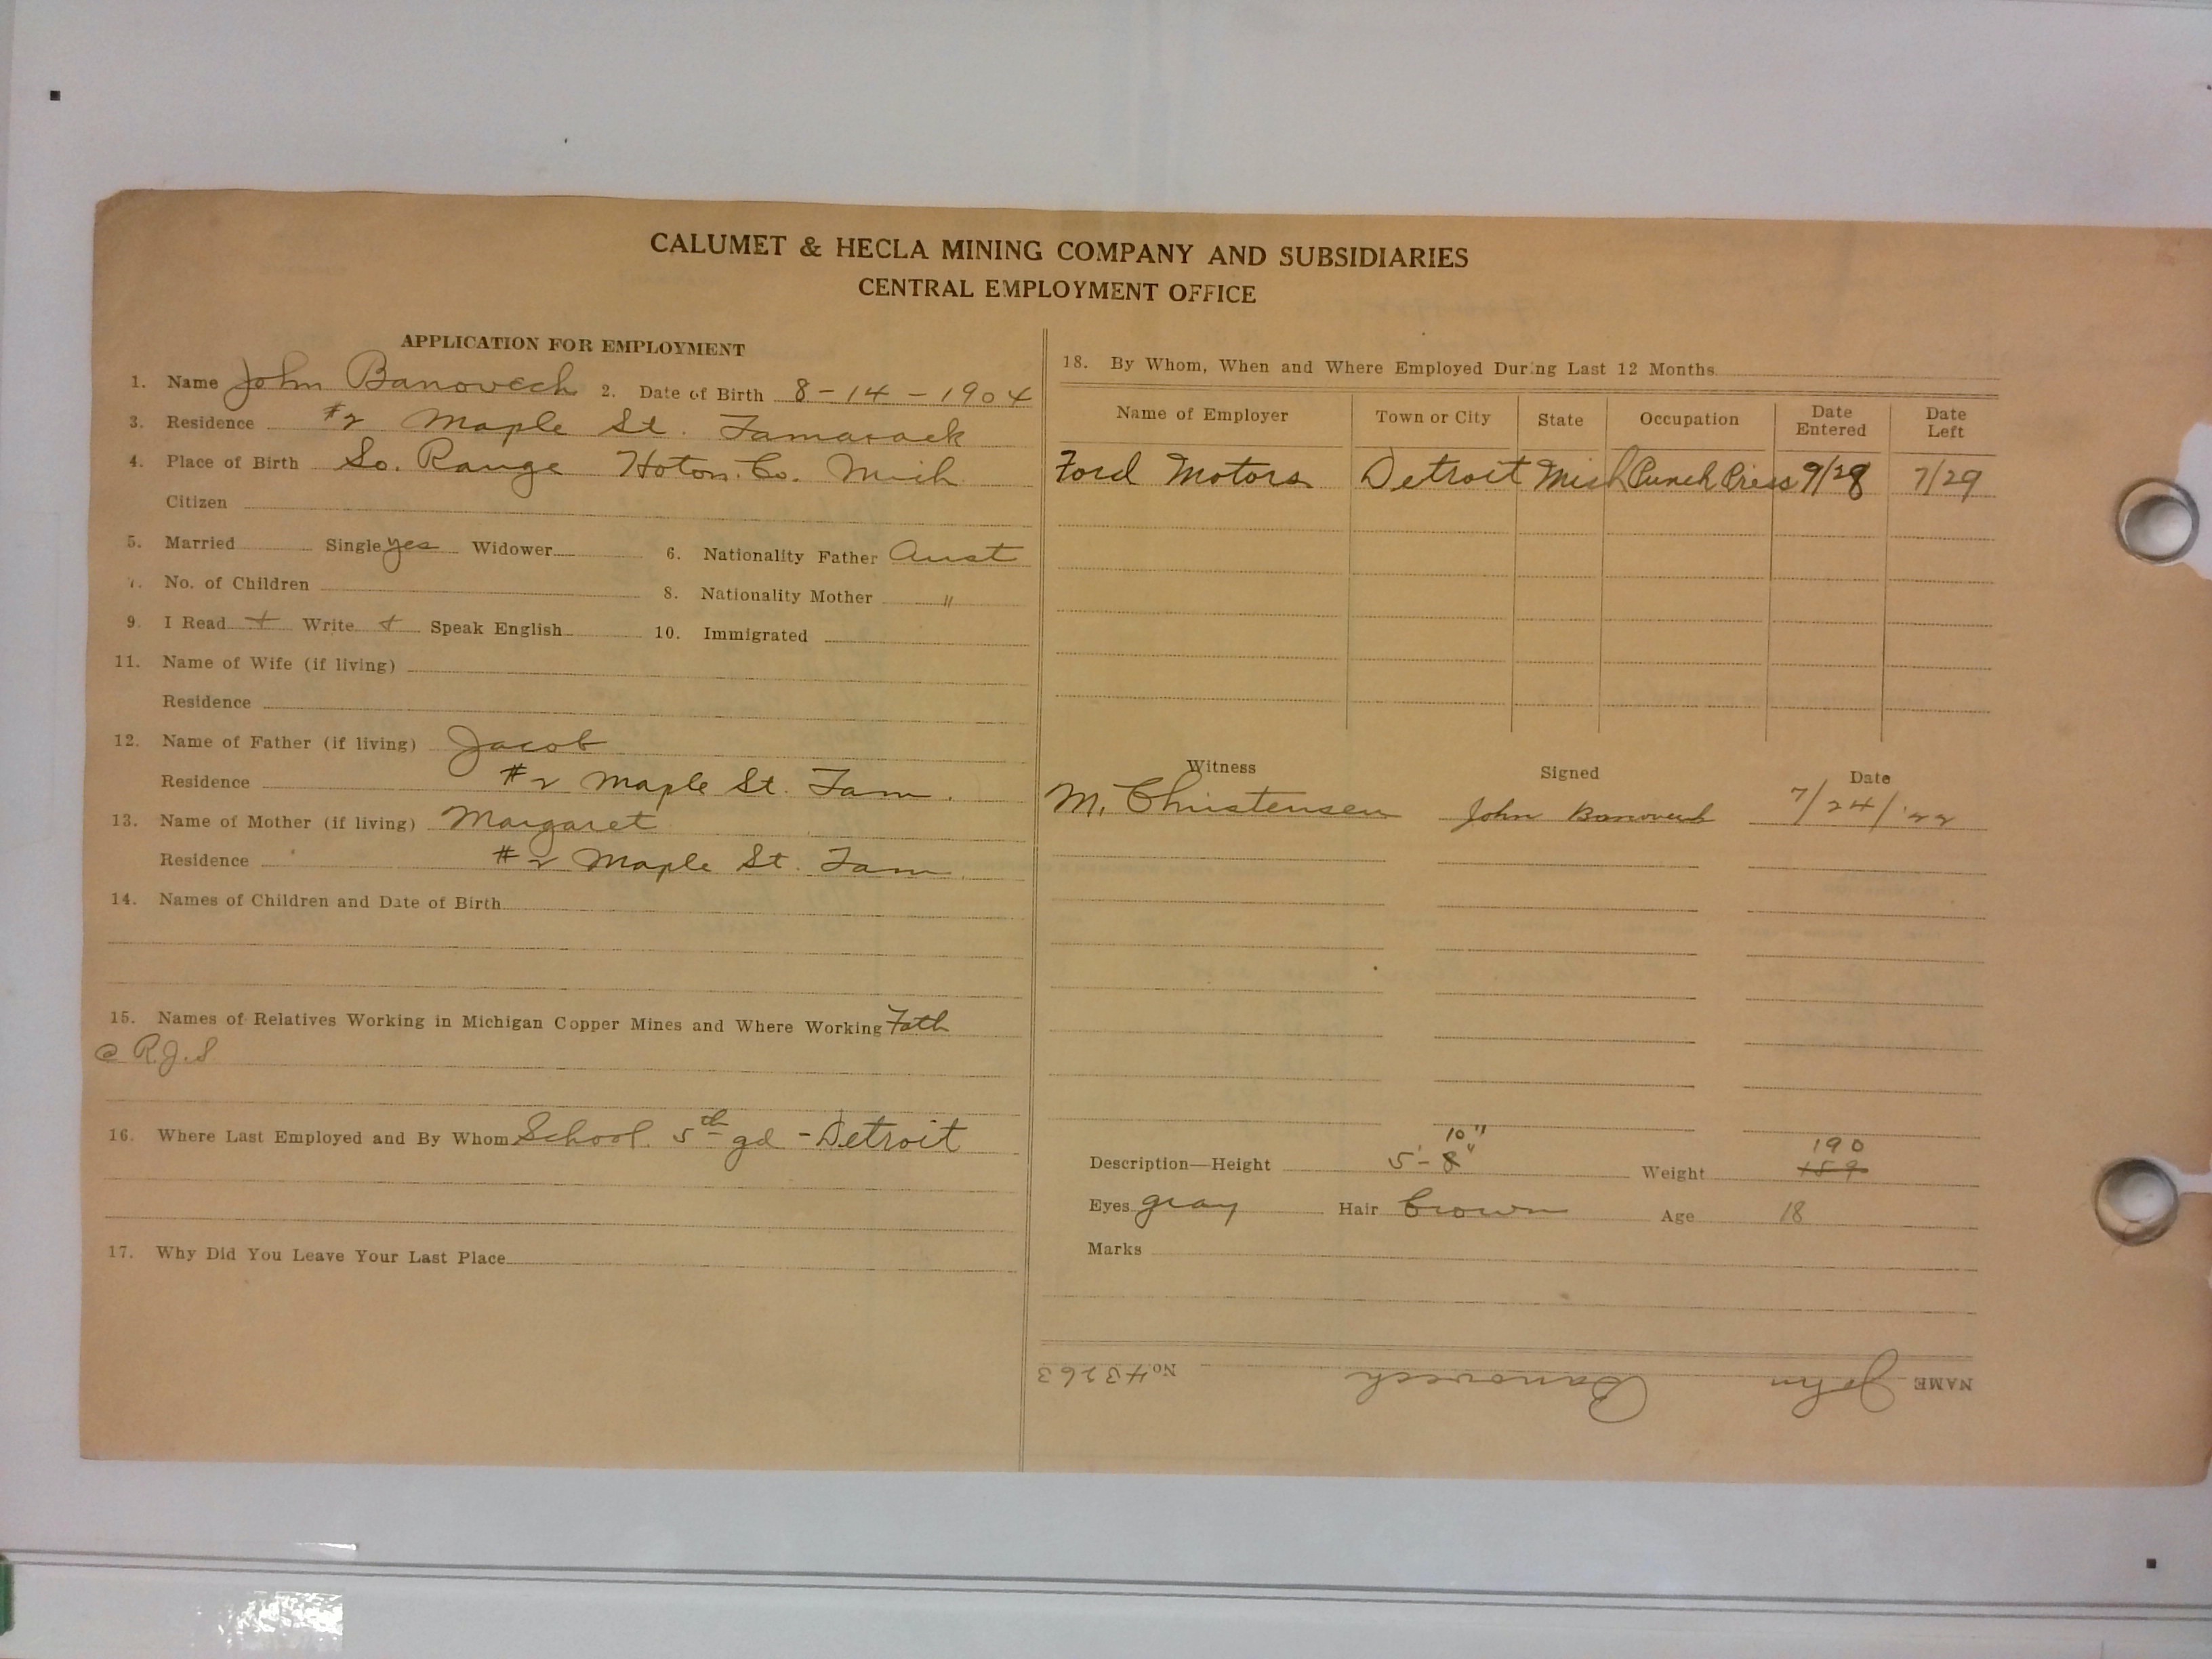 CALUMET & HECLA MINING COMPANY AND SUBSIDIARIES
CENTRAL EMPLOYMENT OFFICE
APPLICATION FOR EMPLOYMENT
1. Name John Banovech 2. Date of Birth 8-14-1904
3. Residence #2 Maple St. Tamarack
4. Place of Birth So. Range Hoton. Co. Mich
Citizen
5. Married Single yes Widower 6. Nationality Father Aust
7. No. of Children 8. Nationality Mother "
9. I Read + Write + Speak English 10. Immigrated
11. Name of Wife (if living)
Residence
12. Name of Father (if living) Jacob
Residence #2 Maple St. Tam.
13. Name of Mother (if living) Margaret
Residence #2 Maple St. Tam.
14. Names of Children and Date of Birth
15. Names of Relatives Working in Michigan Copper Mines and Where Working Fath
@ R.J.S
16. Where Last Employed and By Whom School 5th gd - Detroit
17. Why Did You Leave Your Last Place
18. By Whom, When and Where Employed During Last 12 Months
Name of Employer Town or City State Occupation Date Entered Date Left
Ford Motors Detroit Mich Punch Press 9/28 7/29
Witness Signed Date
M. Christensen John Banovech 7/24/'22
10" 190
Description—Height 5'-8" Weight 159
Eyes gray Hair brown Age 18
Marks
NAME John Banovech No. 43263